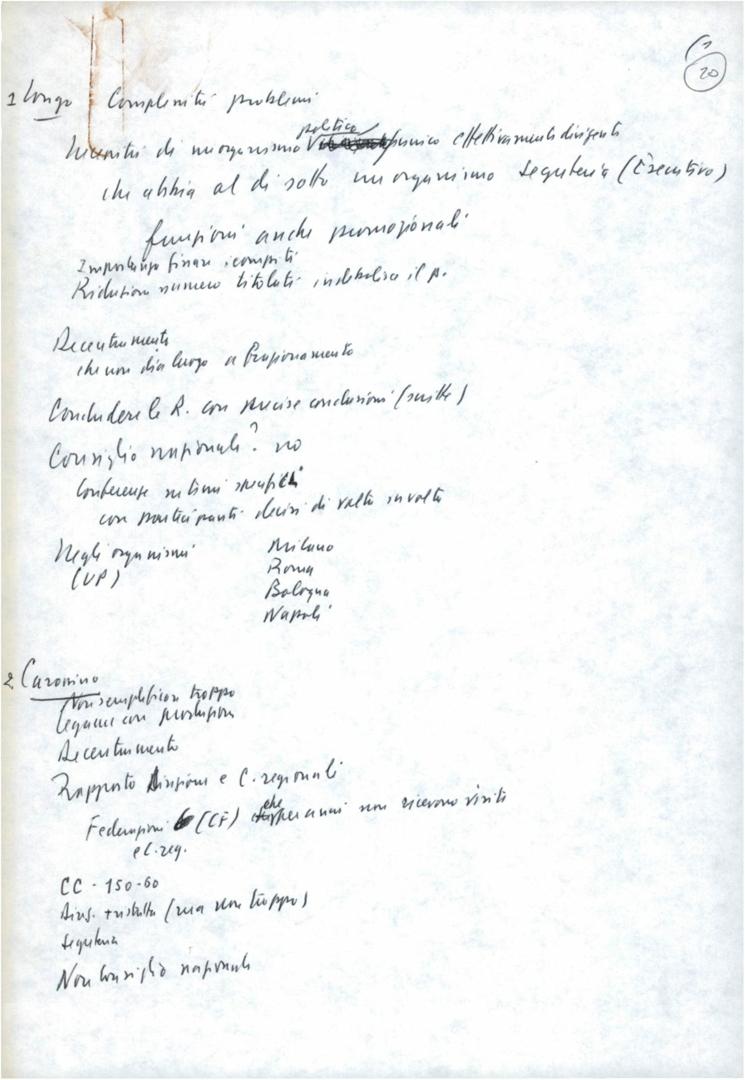 20
1 Longo Complessità problemi
Necessità di un organismo politico unico effettivamente dirigente
che abbia al di sotto un organismo Segreteria (Esecutivo)
funzioni anche promozionali
Importanza fissare i compiti
Riduzione numero titolati indebolisce il p.
Decentramento
che non dia luogo a frazionamento
Concludere le R. con precise conclusioni (scritte)
Consiglio nazionale? no
Conferenze su temi specifici
con partecipanti decisi di volta in volta
Negli organismi Milano
(UP) Roma
Bologna
Napoli
2 Carossino
Non semplificare troppo
Legame con produzione
Decentramento
Rapporto Direzione e C. regionali
Federazioni (CF) che per anni non ricevono visite
e C. reg.
CC - 150-60
Direz. + ristretta (ma non troppo)
Segreteria
Non Consiglio nazionale